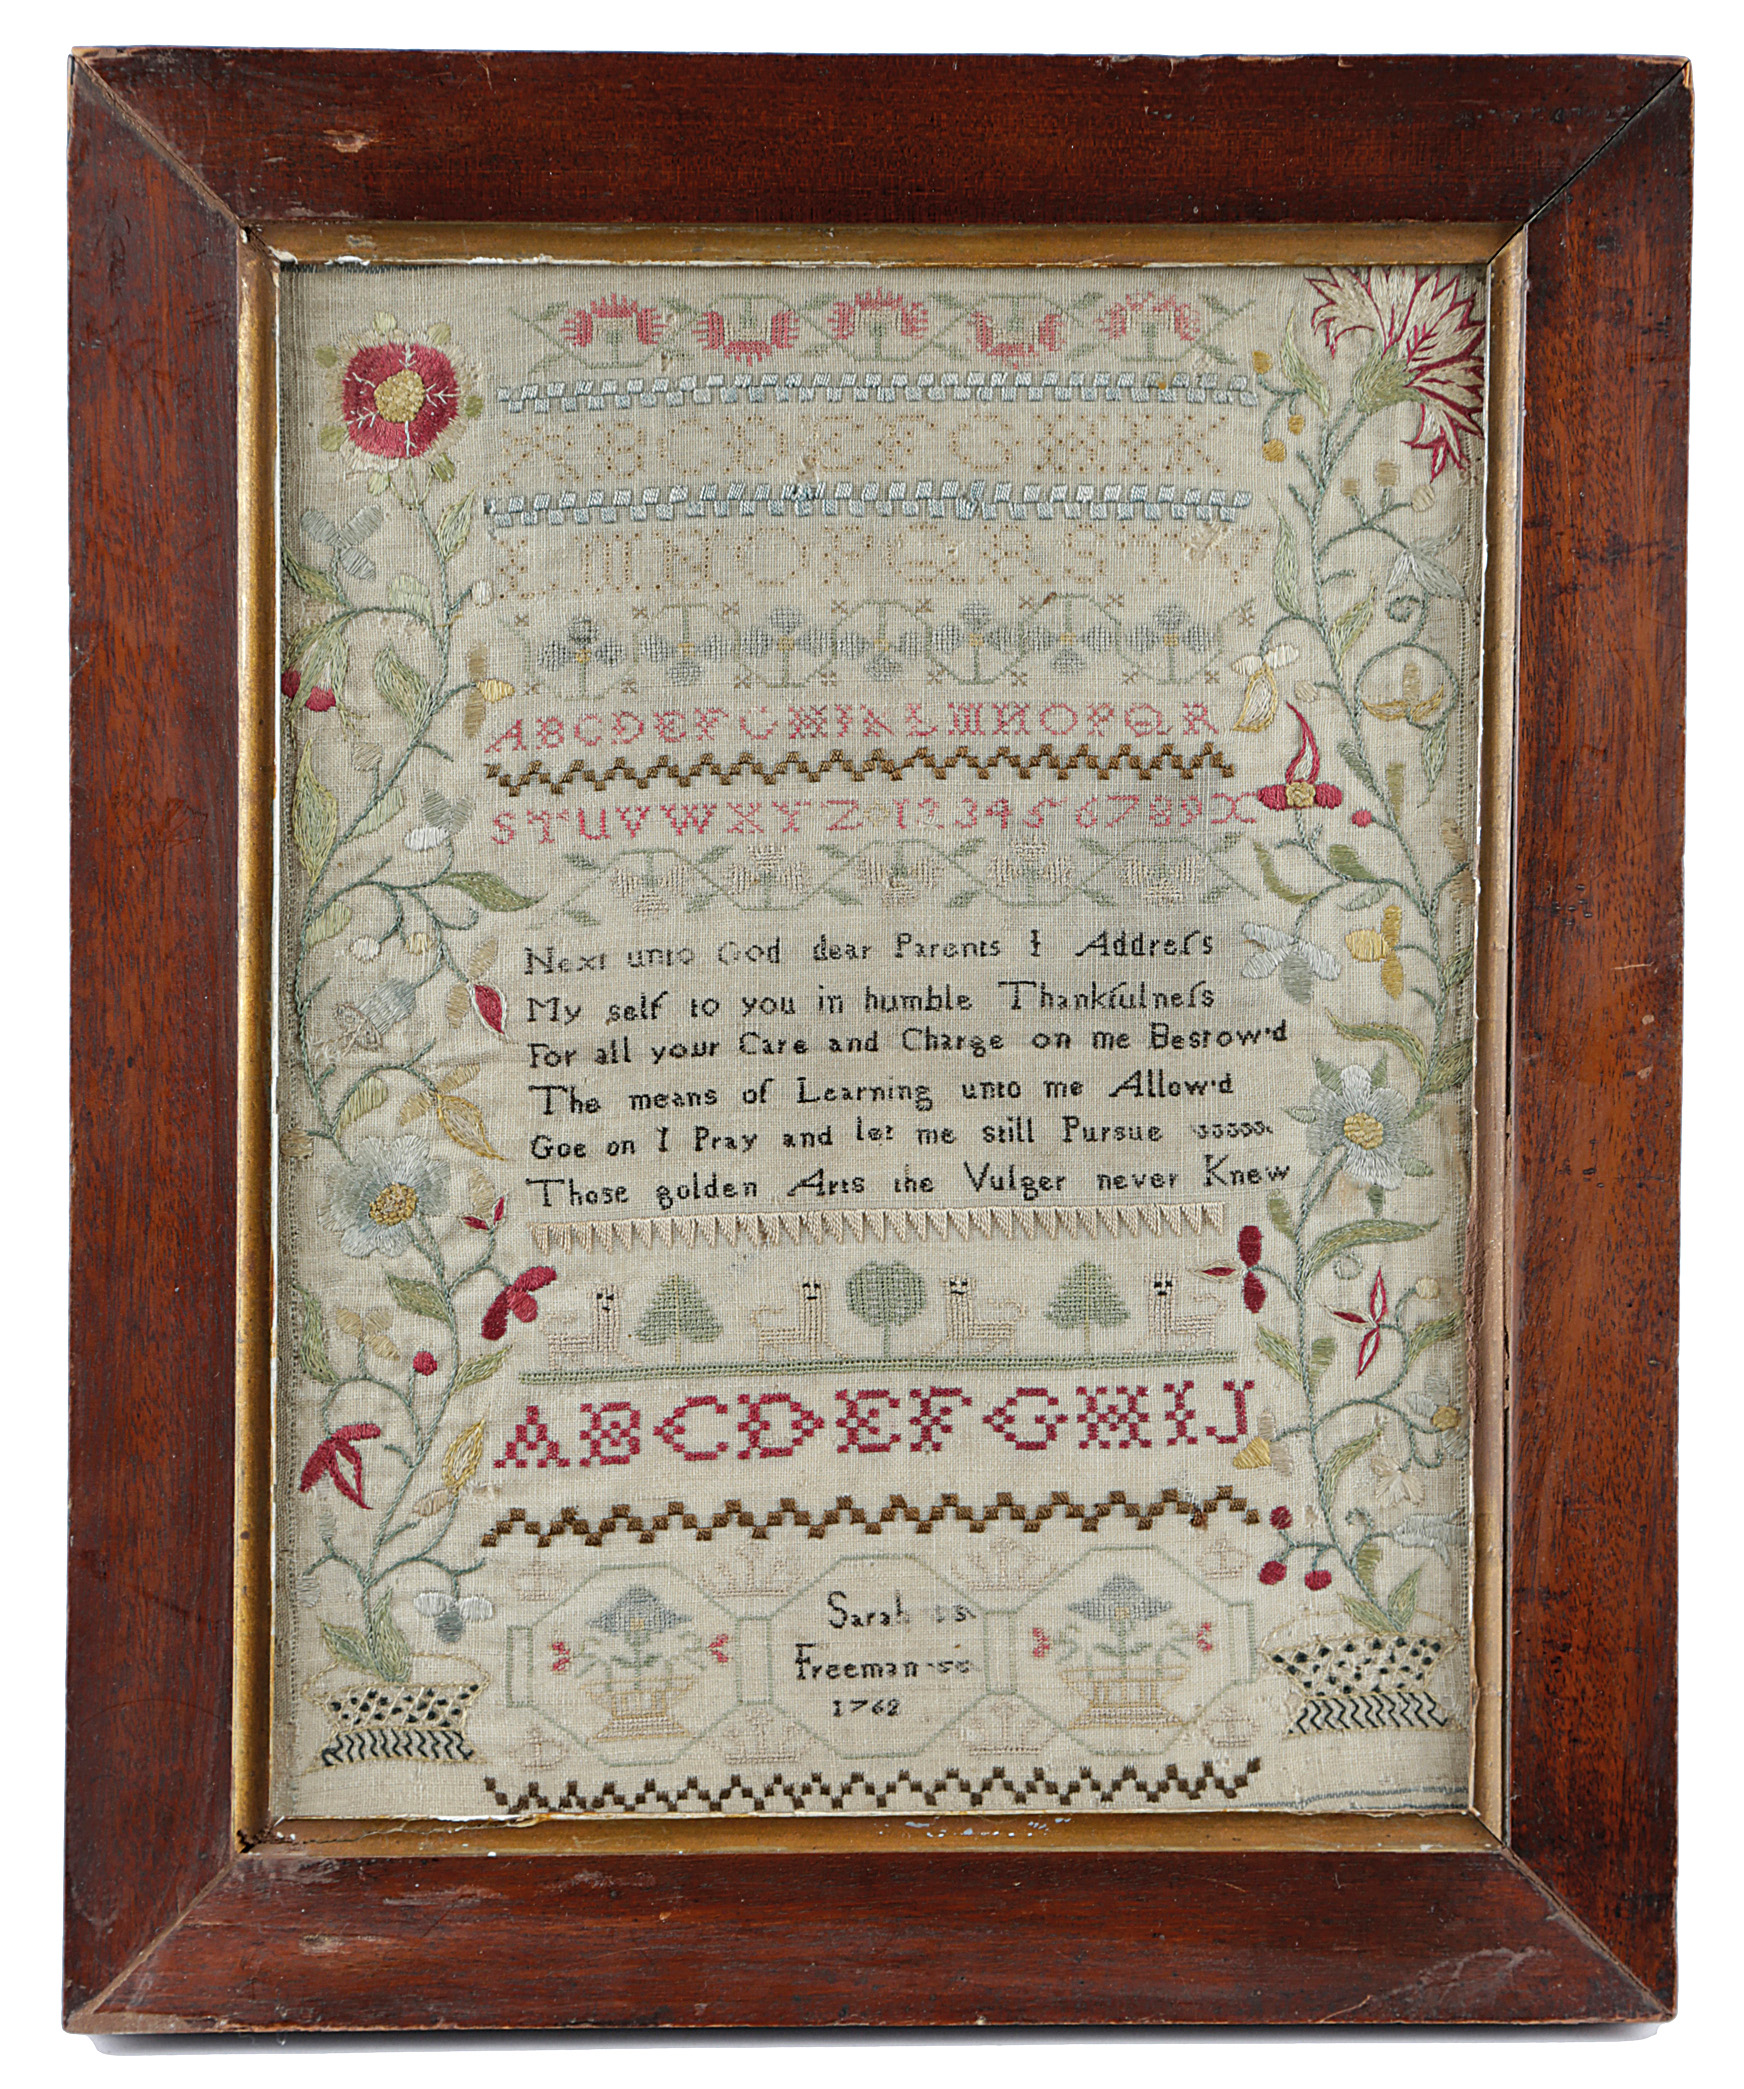 A B C D E F G H I K
L M N O P Q R S T V
A B C D E F G H I K L M N O P Q R
S T U V W X Y Z 1 2 3 4 5 6 7 8 9 X
Next unto God dear Parents I Addreſs
My self to you in humble Thankſulneſs
For all your Care and Charge on me Bestow'd
The means of Learning unto me Allow'd
Goe on I Pray and let me still Pursue
Those golden Arts the Vulger never Knew
A B C D E F G H I J
Sarah
Freeman
1762